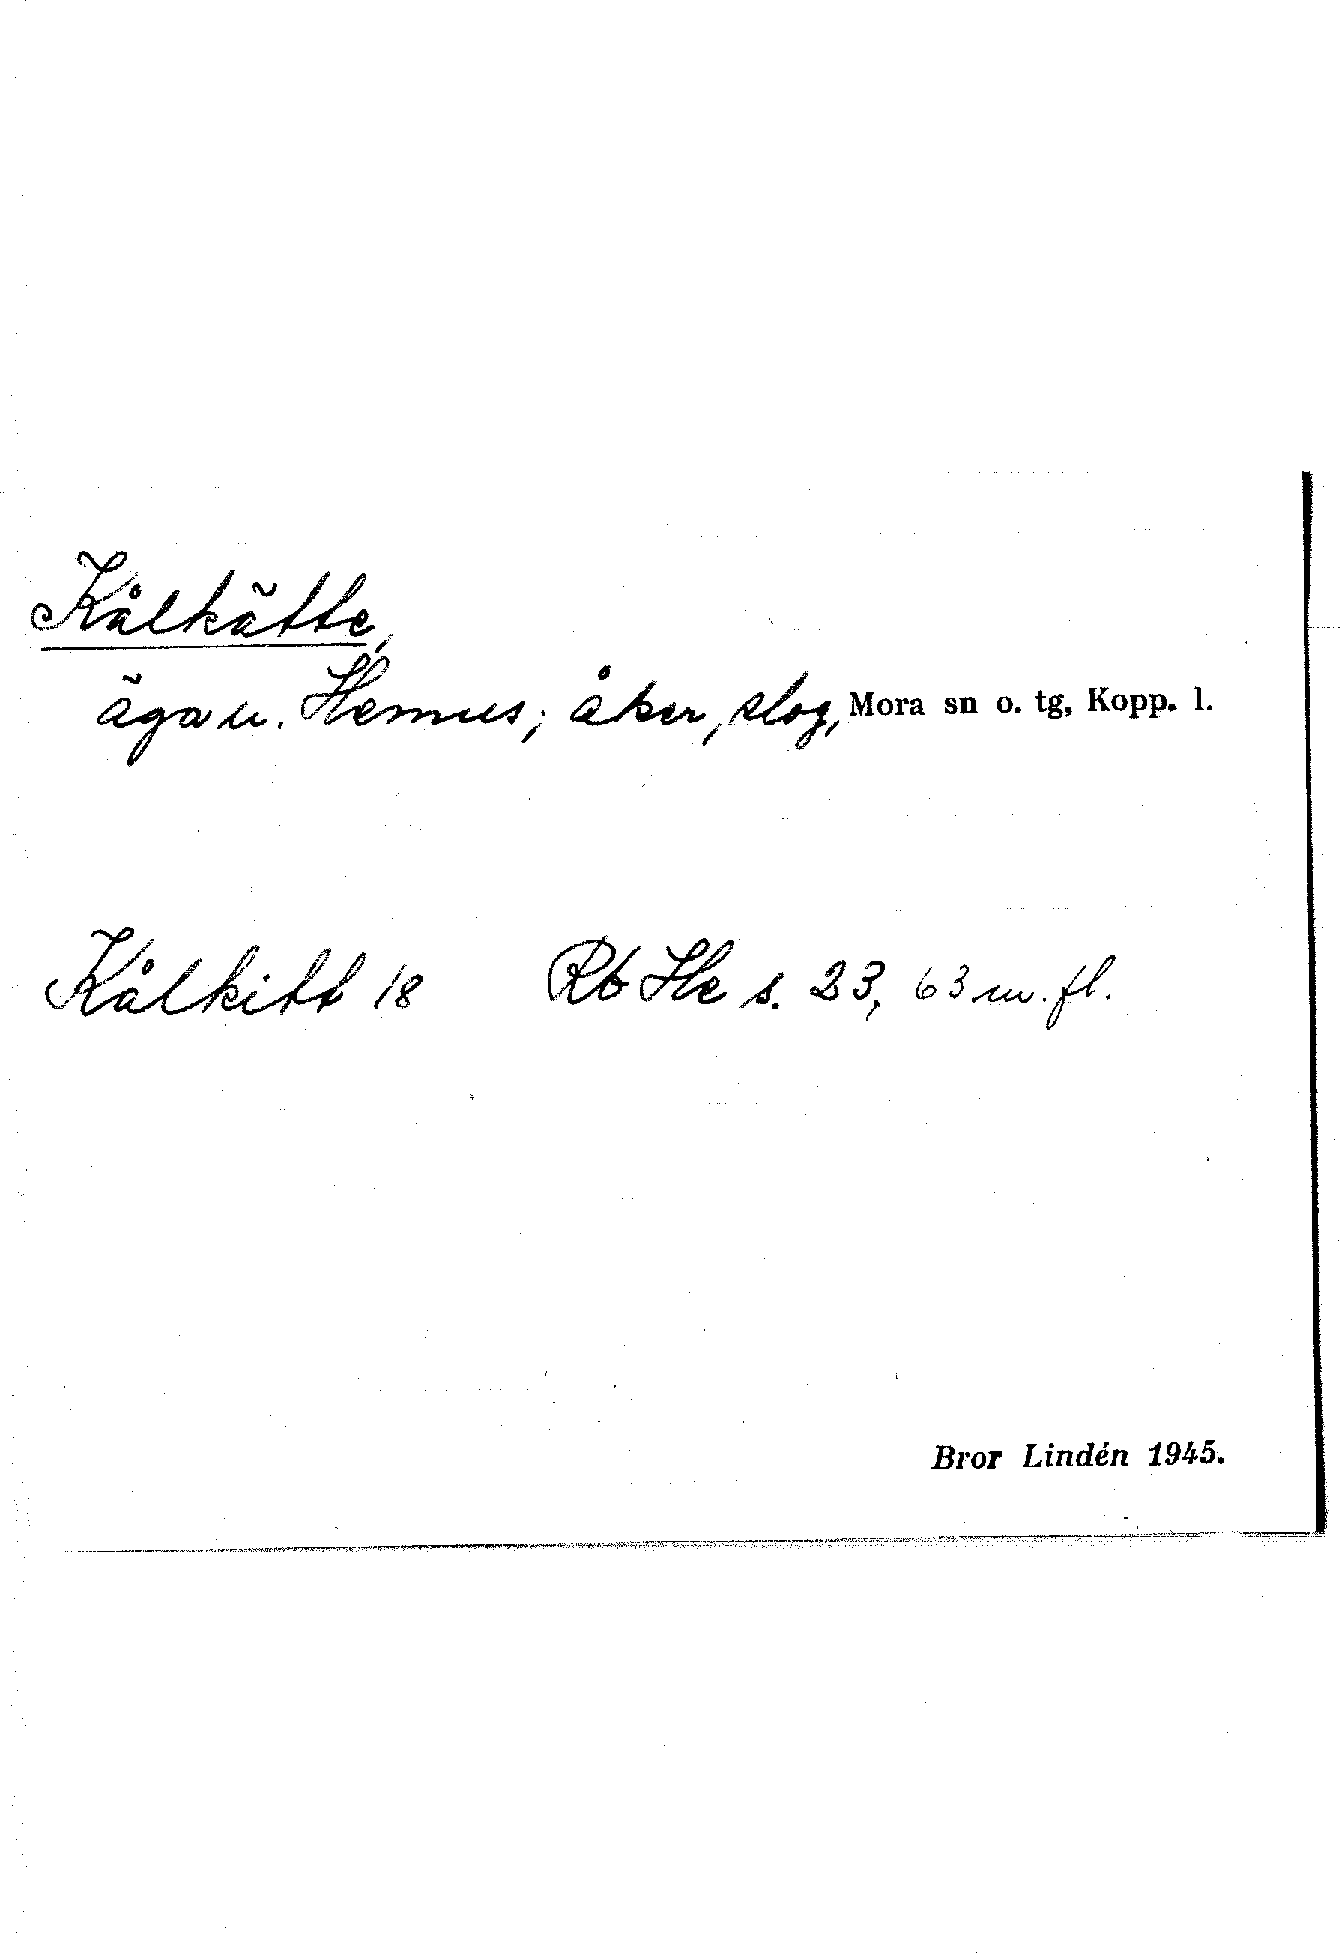 Kålkätte,
äga u. Hemus; åker, slog, Mora sn o. tg, Kopp. l.
Kålkitt 18 Rb He s. 23, 63 m. fl.
Bror Lindén 1945.